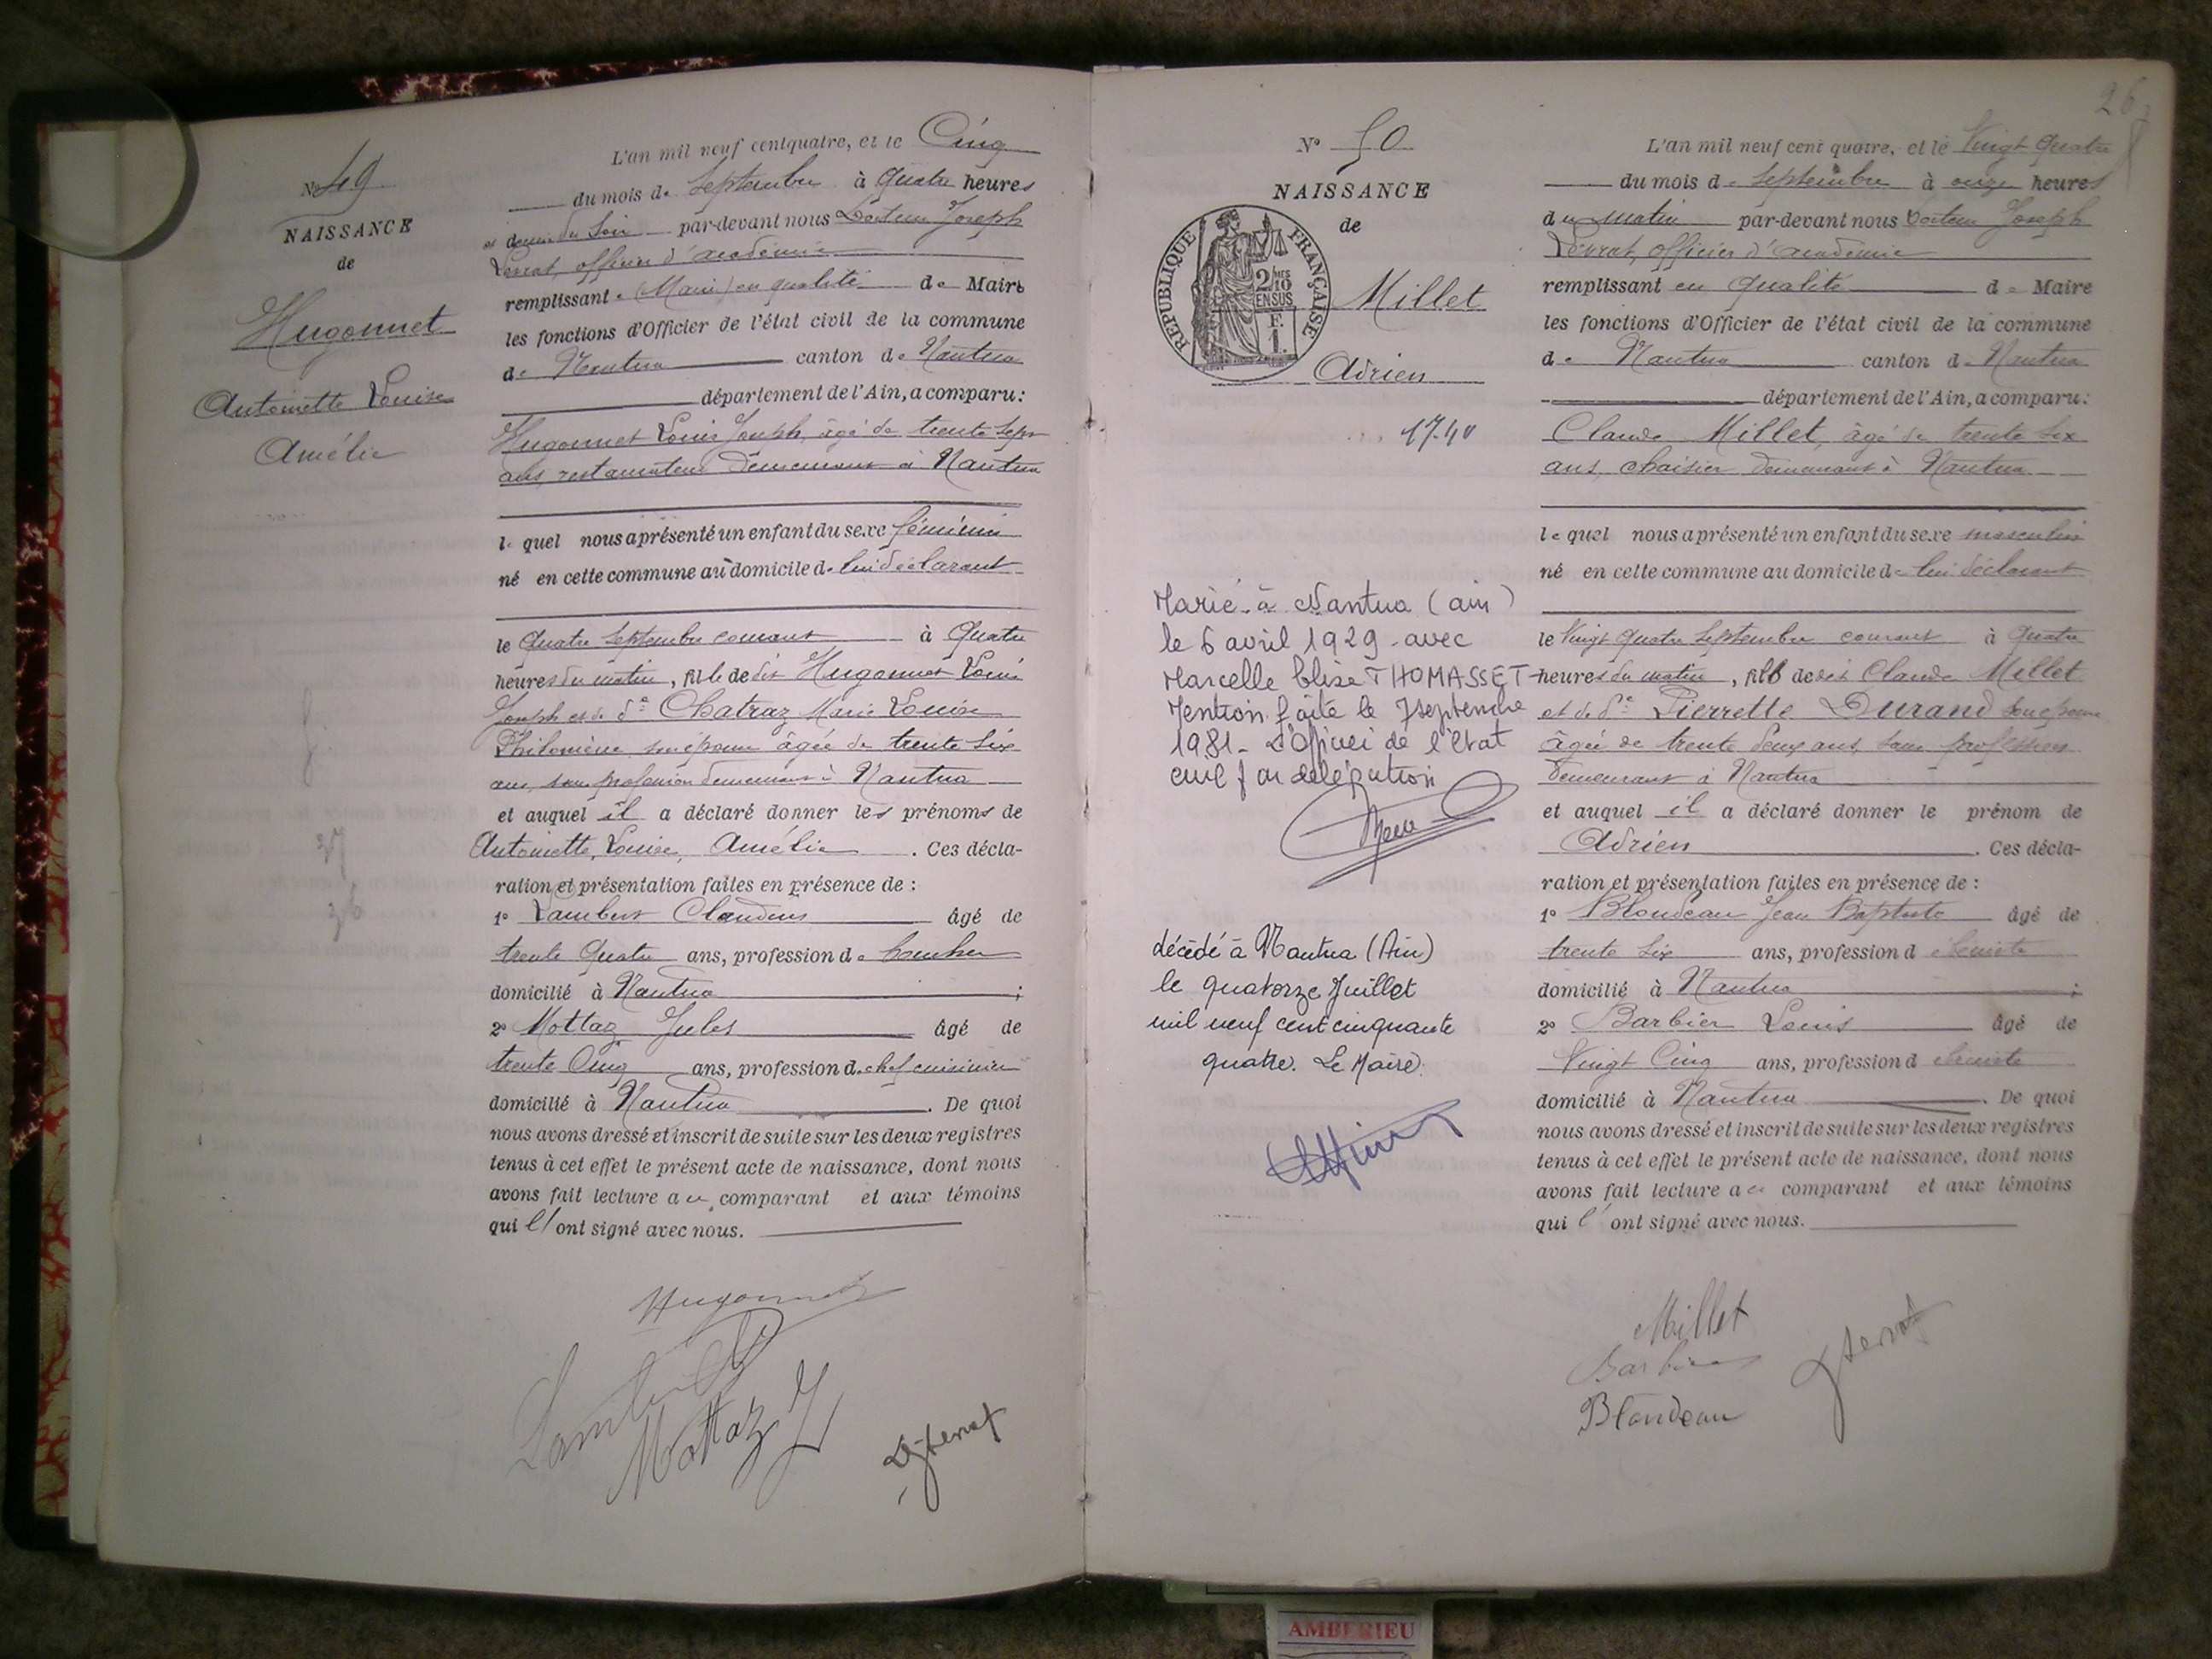 N° 49
NAISSANCE
de
Hugonnet
Antoinette Louise
Amélie
L'an mil neuf cent quatre, et le Cinq
du mois de Septembre à Quatre heures
et demie du Soir par-devant nous Docteur Joseph
Levrat, officier d'académie
remplissant (Maire) en qualité de Maire
les fonctions d'Officier de l'état civil de la commune
de Nantua canton de Nantua
département de l'Ain, a comparu:
Hugonnet Louis Joseph, âgé de trente sept
ans, restaurateur demeurant à Nantua
le quel nous a présenté un enfant du sexe féminin
né en cette commune au domicile de lui déclarant
le Quatre Septembre courant à Quatre
heures du matin, fille de dit Hugonnet Louis
Joseph et de de Chatraz Marie Louise
Philomène son épouse âgée de trente six
ans, sans profession demeurant à Nantua
et auquel il a déclaré donner les prénoms de
Antoinette, Louise, Amélie . Ces décla-
ration et présentation faites en présence de :
1° Lambert Claudius âgé de
trente Quatre ans, profession de boucher
domicilié à Nantua ;
2° Mottaz Jules âgé de
trente Cinq ans, profession de chef cuisinier
domicilié à Nantua . De quoi
nous avons dressé et inscrit de suite sur les deux registres
tenus à cet effet le présent acte de naissance, dont nous
avons fait lecture au comparant et aux témoins
qui l'ont signé avec nous.
Hugonnet
Lambert
Mottaz J
Levrat
26
N° 50
NAISSANCE
de
REPUBLIQUE FRANÇAISE
2/10 EN SUS
F.
1.
Millet
Adrien
17.40
Marié à Nantua (ain)
le 6 avril 1929 avec
Marcelle Elise THOMASSET
Mention faite le 7 septembre
1981 - L'Officier de l'Etat
civil par délégation
décédé à Nantua (Ain)
le quatorze Juillet
mil neuf cent cinquante
quatre. Le Maire.
L'an mil neuf cent quatre, et le Vingt Quatre
du mois de Septembre à onze heures
du matin par-devant nous Docteur Joseph
Levrat, officier d'académie
remplissant en qualité de Maire
les fonctions d'Officier de l'état civil de la commune
de Nantua canton de Nantua
département de l'Ain, a comparu:
Claude Millet, âgé de trente six
ans, chaisier demeurant à Nantua
le quel nous a présenté un enfant du sexe masculin
né en cette commune au domicile de lui déclarant
le Vingt Quatre Septembre courant à Quatre
heures du matin, fils de dit Claude Millet
et de de Pierrette Durand son épouse
âgée de trente deux ans, sans profession
demeurant à Nantua
et auquel il a déclaré donner le prénom de
Adrien . Ces décla-
ration et présentation faites en présence de :
1° Blondeau Jean Baptiste âgé de
trente six ans, profession d'ébéniste
domicilié à Nantua ;
2° Barbier Louis âgé de
Vingt Cinq ans, profession d'ébéniste
domicilié à Nantua . De quoi
nous avons dressé et inscrit de suite sur les deux registres
tenus à cet effet le présent acte de naissance, dont nous
avons fait lecture au comparant et aux témoins
qui l'ont signé avec nous.
Millet
Barbier
Blondeau
Levrat
AMBERIEU